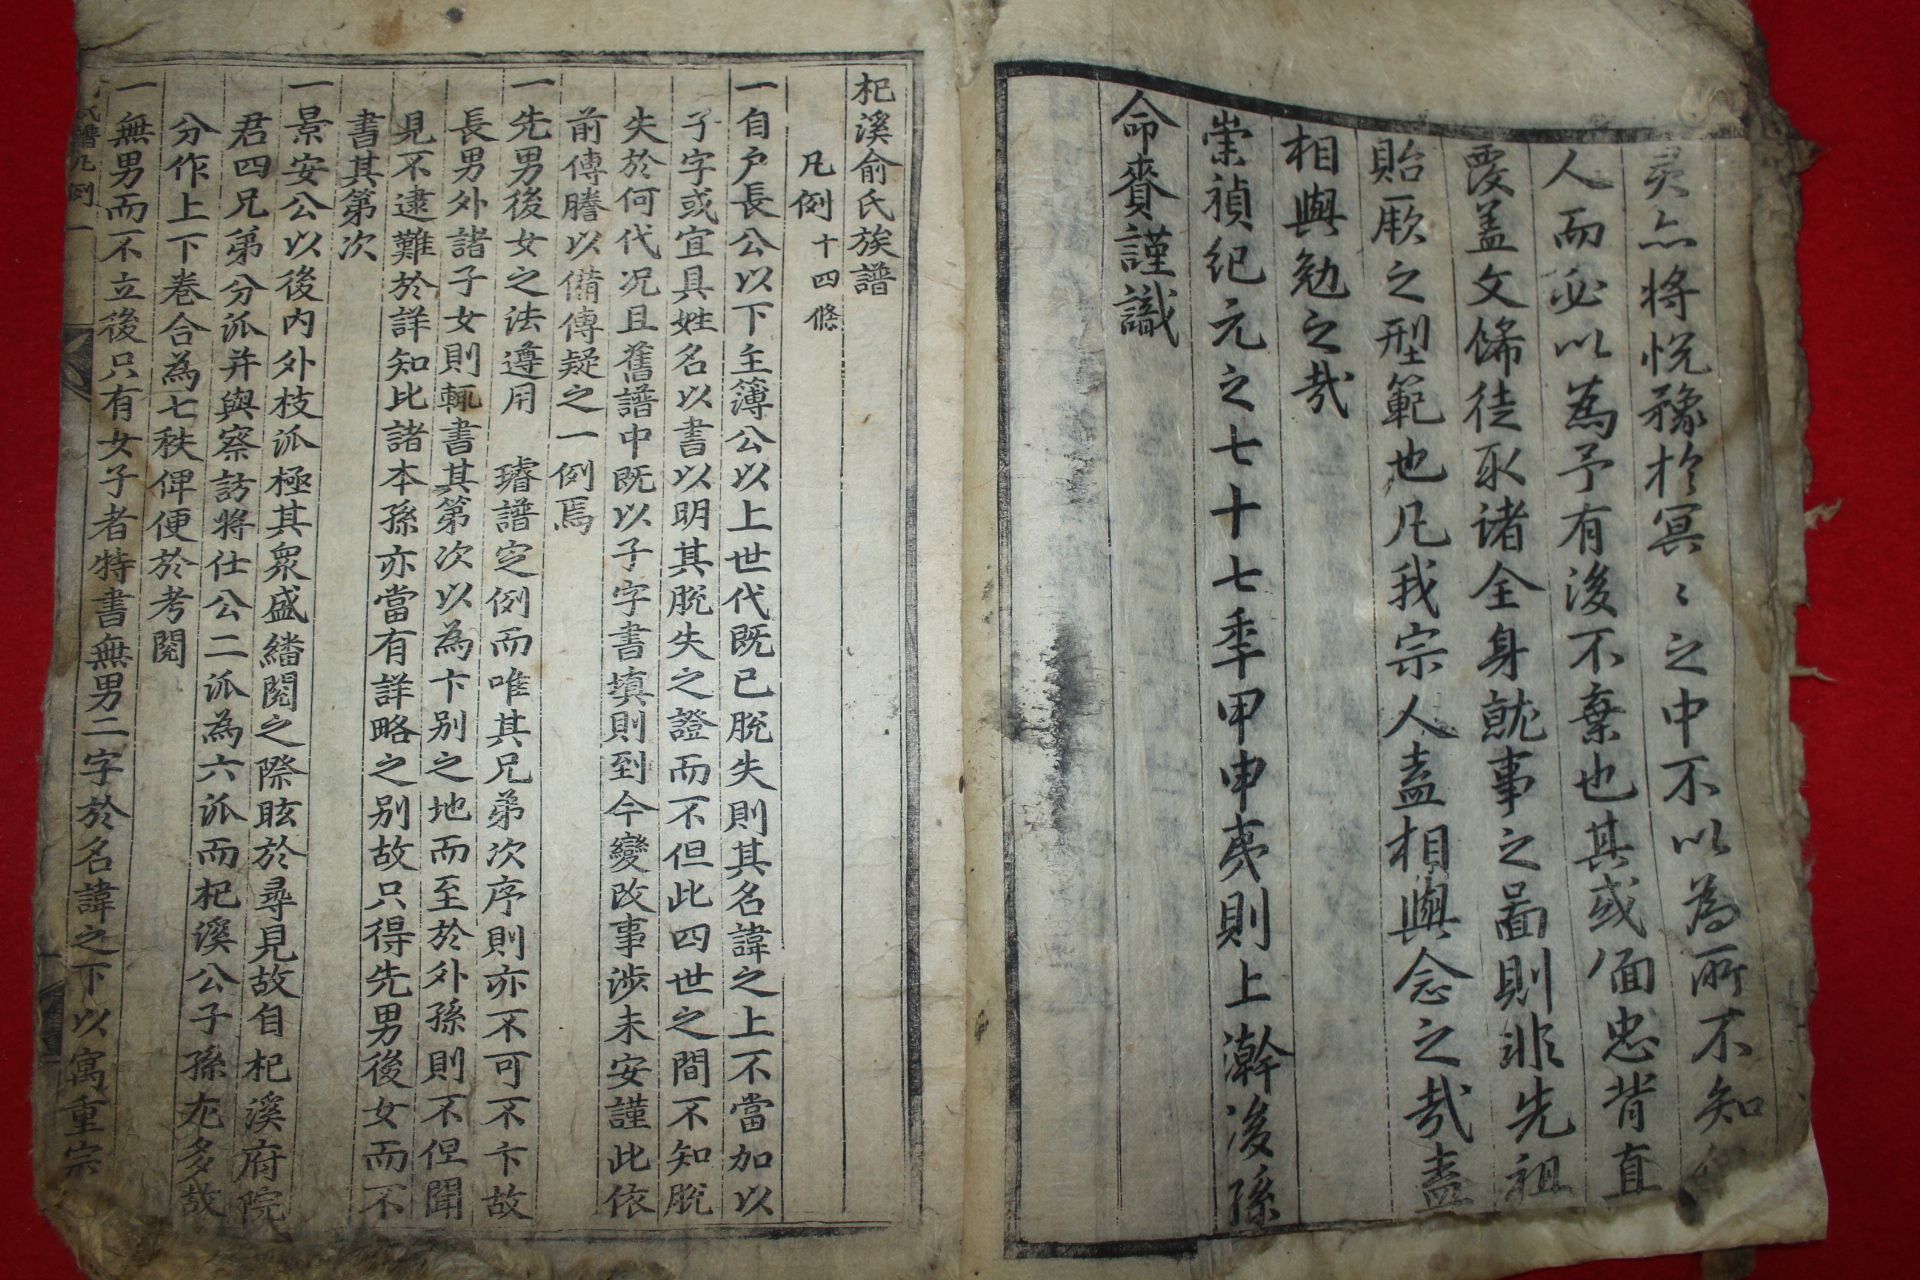 灵亦將悅豫於冥〻之中不以為所不知
人而必以為予有後不棄也其或偭忠背直
覆盖文餙徒取诸全身就事之啚則非先祖
貽厥之型範也凡我宗人盍相與念之哉盍
相與勉之哉
崇禎紀元之七十七季甲申夷則上澣後孫
命賚謹識
杞溪俞氏族譜
凡例 十四條
一自户長公以下主簿公以上世代既已脫失則其名諱之上不當加以
子字或宜具姓名以書以明其脫失之證而不但此四世之間不知脫
失於何代况且舊譜中既以子字書填則到今變改事涉未安謹此依
前傳謄以備傳疑之一例焉
一先男後女之法遵用 璿譜定例而唯其兄弟次序則亦不可不卞故
長男外諸子女則輒書其第次以為卞別之地而至於外孫則不但聞
見不逮難於詳知比諸本孫亦當有詳略之別故只得先男後女而不
書其第次
一景安公以後內外枝派極其衆盛繙閱之際眩於尋見故自杞溪府院
君四兄弟分派并與察訪將仕公二派為六派而杞溪公子孫尤多故
分作上下卷合為七秩俾便於考閱
一無男而不立後只有女子者特書無男二字於名諱之下以寓重宗
氏譜凡例 一